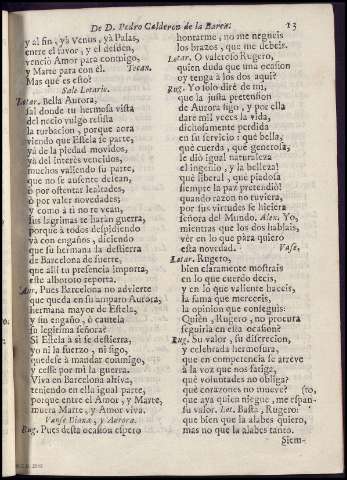 De D. Pedro Calderon de la Barca.
13
y al fin, yà Venus, yà Palas,
entre el favor, y el desdèn,
venciò Amor para conmigo,
y Marte para con èl. Tocan.
Mas què es esto?
Sale Lotario.
Lotar. Bella Aurora,
sal donde tu hermosa vista
del necio vulgo resista
la turbacion, porque aora
viendo que Estela se parte,
yà de la piedad movidos,
yà del interès vencidos,
muchos valiendo su parte,
que no se ausente desean,
ò por ostentar lealtades,
ò por valer novedades;
y como à ti no te vean,
sus lagrimas te haràn guerra,
porque à todos despidiendo
và con engaños, diciendo
que su hermana la destierra
de Barcelona de suerte,
que allì tu presencia importa,
este alboroto reporta.
Aur. Pues Barcelona no advierte
que queda en su amparo Aurora,
hermana mayor de Estela,
y sin engaño, ò cautela
su legitima señora?
Si Estela à sì se destierra,
yo ni la fuerzo, ni sigo,
quedese à mandar conmigo,
y cesse por mì la guerra.
Viva en Barcelona altiva,
teniendo en ella igual parte,
porque entre el Amor, y Marte,
muera Marte, y Amor viva.
Vanse Diana, y Aurora.
Rug. Pues desta ocasion espero
honrarme, no me negueis
los brazos, que me debeis.
Lotar. O valeroso Rugero,
quien duda que una ocasion
oy tenga à los dos aqui?
Rug. Yo solo dirè de mì,
que la justa pretension
de Aurora sigo, y por ella
darè mil veces la vida,
dichosamente perdida
en su servicio: què bella,
què cuerda, què generosa,
se diò igual naturaleza
el ingenio, y la belleza!
què liberal, què piadosa
siempre la paz pretendiò!
quando razon no tuviera,
por sus virtudes se hiciera
señora del Mundo. Alex. Yo,
mientras que los dos hablais,
vèr en lo que pàra quiero
esta novedad. Vase.
Lotar. Rugero,
bien claramente mostrais
en lo que cuerdo decis,
y en lo que valiente haceis,
la fama que mereceis,
la opinion que conseguìs:
Quièn, Rugero, no procura
seguirla en esta ocasion?
Rug. Su valor, su discrecion,
y celebrada hermosura,
que en competencia se atreve
à la voz que nos fatiga,
què voluntades no obliga?
què corazones no mueve?
que aya quien niegue, me espan-
(to,
su valor. Lot. Basta, Rugero:
que bien que la alabes quiero,
mas no que la alabes tanto.
Siem-